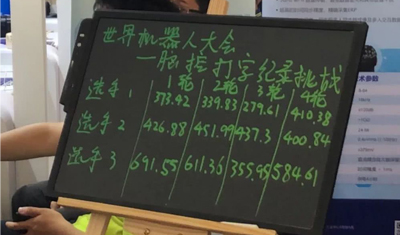 世界机器人大会
—脑控打字纪录挑战
1轮 2轮 3轮 4轮
选手1 373.42 339.83 279.61 410.38
选手2 426.88 451.99 437.3 400.84
选手3 691.55 611.35 355.95 584.61